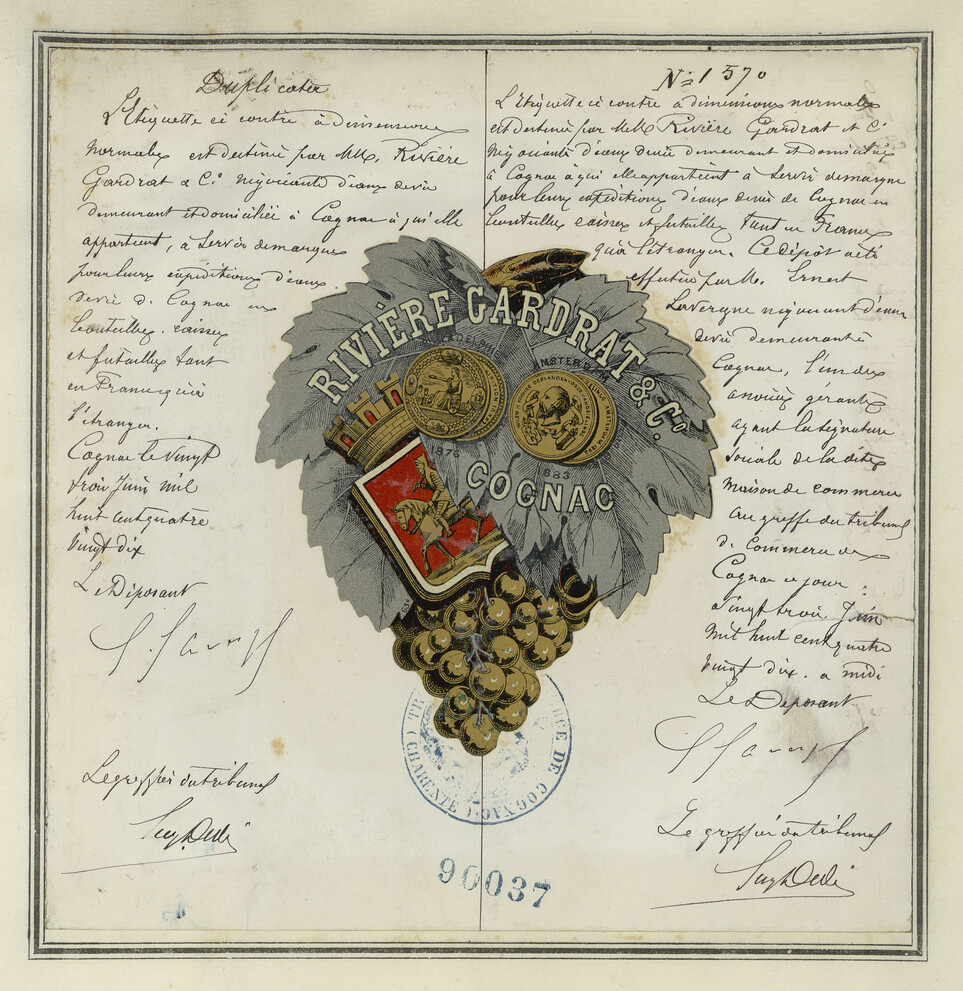 Duplicata
L'Etiquette ci contre à dimensions
normales est destinée par MM. Rivière
Gardrat & Cie négociants d'eaux de vie
demeurant et domiciliés à Cognac à qui elle
appartient, à servir de marque
pour leurs expéditions d'eaux
de vie de Cognac en
bouteilles, caisses
et futailles tant
en France qu'à
l'étranger.
Cognac le vingt
trois Juin mil
huit cent quatre
vingt dix
Le Déposant
Le greffier du tribunal
No 1570
L'Etiquette ci contre à dimensions normales
est destinée par MM Rivière Gardrat et Cie
négociants d'eaux de vie demeurant et domiciliés
à Cognac à qui elle appartient à servir de marque
pour leurs expéditions d'eaux de vie de Cognac en
bouteilles caisses et futailles tant en France
qu'à l'étranger. Ce dépôt a été
effectué par M. Ernest
Lavergne négociant d'eaux
de vie demeurant à
Cognac, l'un des
associés gérants
ayant la signature
sociale de la dite
maison de commerce
au greffe du tribunal
de Commerce de
Cognac ce jour
vingt trois Juin
mil huit cent quatre
vingt dix. a midi
Le Déposant
Le greffier du tribunal
RIVIÈRE GARDRAT & Co.
AMSTERDAM
1876
883
COGNAC
CHARENTE
RCE DE COGNAC
90037